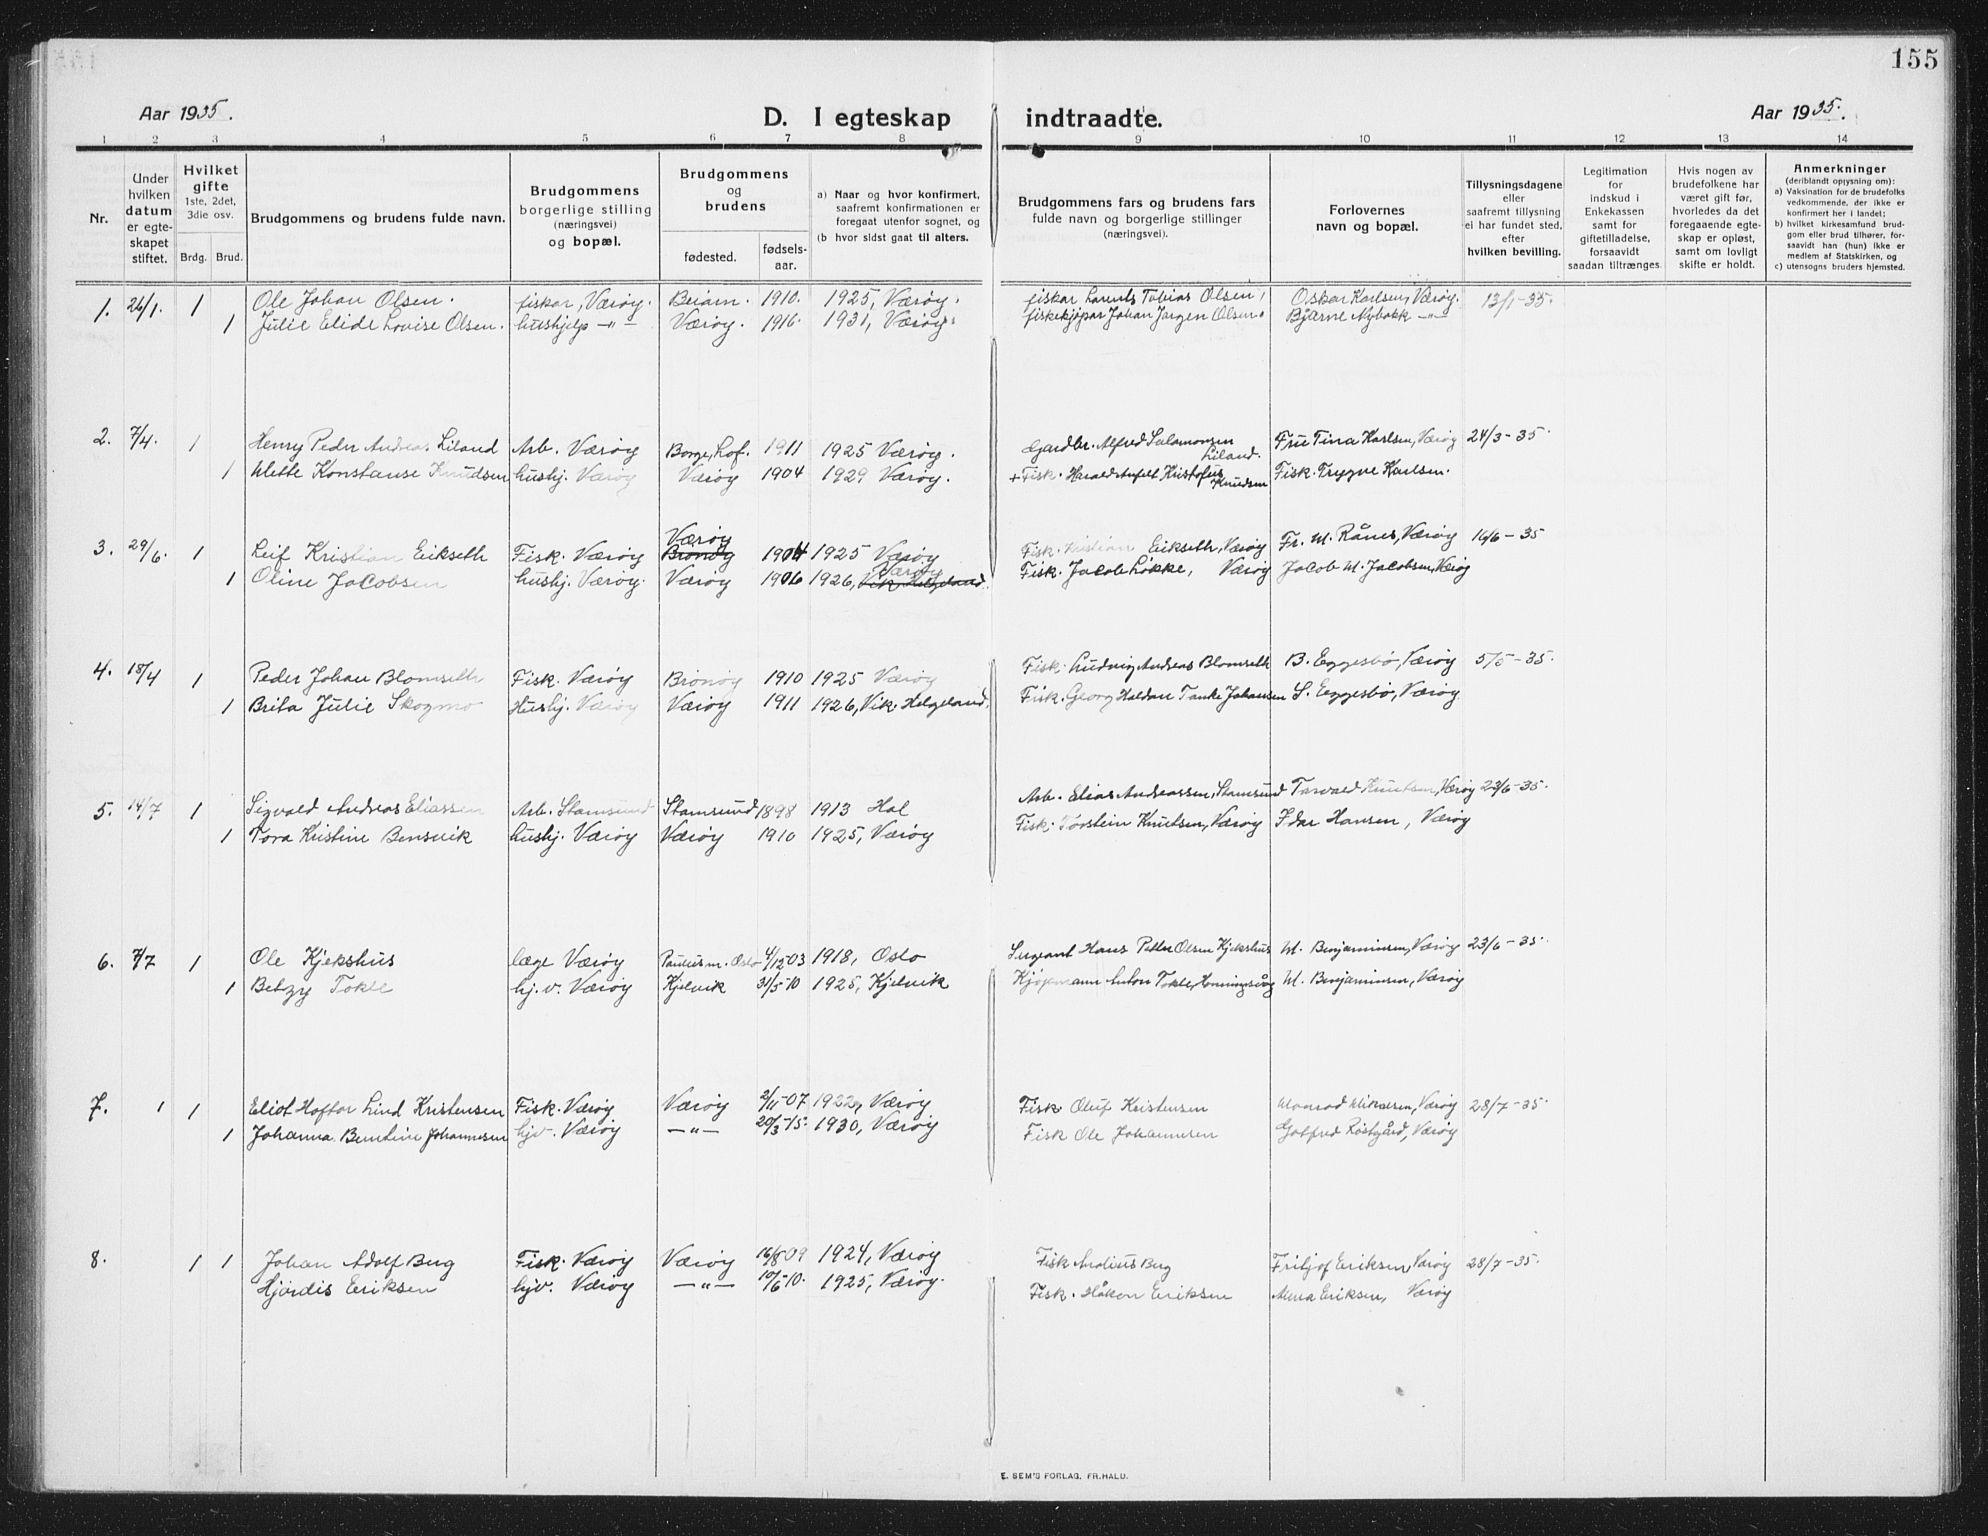 155
Aar 1935.
D. I egteskap indtraadte.
Aar 1935.
1 2 3 4 5 6 7 8 9 10 11 12 13 14
Nr.
Under hvilken datum er egteskapet stiftet.
Hvilket gifte 1ste, 2det, 3die osv.
Brdg. Brud.
Brudgommens og brudens fulde navn.
Brudgommens borgerlige stilling (næringsvei) og bopæl.
Brudgommens og brudens
fødested. fødsels-aar.
a) Naar og hvor konfirmert, saafremt konfirmationen er foregaat utenfor sognet, og
(b hvor sidst gaat til alters.
Brudgommens fars og brudens fars fulde navn og borgerlige stillinger (næringsvei).
Forlovernes navn og bopæl.
Tillysningsdagene eller saafremt tillysning ei har fundet sted, efter hvilken bevilling.
Legitimation for indskud i Enkekassen samt for giftetilladelse, forsaavidt saadan tiltrænges.
Hvis nogen av brudefolkene har været gift før, hvorledes da det foregaaende egteskap er opløst, samt om lovligt skifte er holdt.
Anmerkninger (deriblandt oplysning om):
a) Vaksination for de brudefolks vedkommende, der ikke er konfirmert her i landet;
b) hvilket kirkesamfund brudgom eller brud tilhører, forsaavidt han (hun) ikke er medlem av Statskirken, og
c) utensogns bruders hjemsted.
1. 26/1. 1 Ole Johan Olsen. fiskar, Værøy. Beiarn. 1910. 1925, Værøy. fiskar Lorents Tobias Olsen, Oskar Karlsen, Værøy. 13/1-35.
1 Julie Elide Lovise Olsen. hushjelp -"- Værøy. 1916. 1931, Værøy. fiskekjøpar Johan Jørgen Olsen. Bjarne Nybakk -"-
2. 7/4. 1 Henry Peder Andreas Liland Arb. Værøy Borge, Lof. 1911 1925 Værøy. Gardbr. Alfred Salamonsen Liland. Fru Tina Karlsen, Værøy 24/3-35.
1 Mette Konstanse Knudsen hushj. Værøy Værøy 1904 1929 Værøy. + Fisk. Harald Kristofus Knudsen Fisk. Trygve Karlsen.
3. 29/6. 1 Leif Kristian Eikseth Fisk. Værøy Værøy Brønøy 1904 1925 Værøy Fisk. Kristian Eikseth, Værøy Fr. M. Rånes, Værøy 16/6-35
1 Oline Jacobsen hushj. Værøy. Værøy 1906 1926, Værøy Vik, Helgeland. Fisk. Jacob Løkke, Værøy Jacob M. Jacobsen, Værøy
4. 18/4 1 Peder Johan Blomseth Fisk. Værøy Brønøy 1910 1925 Værøy Fisk. Ludvig Andreas Blomseth B. Eggesbø, Værøy 5/5-35.
1 Brita Julie Skogmo Hushj. Værøy Værøy 1911 1926, Vik. Helgeland. Fisk. Georg Haldan Tanke Johansen S. Eggesbø, Værøy.
5. 14/7 1 Sigvald Andreas Eliassen Arb. Stamsund Stamsund 1898 1913 Hol Arb. Elias Andreassen, Stamsund Torvald Knutsen, Værøy 23/6-35.
1 Tora Kristine Bensvik hushj. Værøy Værøy 1910 1925, Værøy Fisk. Torstein Knutsen, Værøy Idar Hansen, Værøy
6. 7/7 1 Ole Kjekshus læge Værøy Paulusm. Oslo 4/12 03 1918, Oslo Sergeant Hans Petter Olsen Kjekshus M. Benjaminsen, Værøy 23/6-35.
1 Betzy Tokle hj.v. Værøy Kjelvik 31/5 10 1925, Kjelvik Kjøpmann Anton Tokle, Honningsvåg M. Benjaminsen, Værøy
7. 1 Eliot Hoftor Lind Kristensen Fisk. Værøy Værøy 2/11-07 1922, Værøy Fisk Oluf Kristensen Monrad Mikalsen, Værøy 28/7-35.
1 Johanna Berntine Johannesen hjv. Værøy -"- 20/3-15. 1930, Værøy Fisk Ole Johannesen Gotfred Røstgård, Værøy
8. 1 1 Johan Adolf Berg Fisk. Værøy Værøy 16/8-09 1924, Værøy Fisk Berg Fritjof Eriksen Værøy 28/7-35.
Hjørdis Eriksen hjv. Værøy -"- 10/6-10. 1925, Værøy. Fisk. Håkon Eriksen Anna Eriksen, Værøy
E. SEM'S FORLAG, FR.HALD.